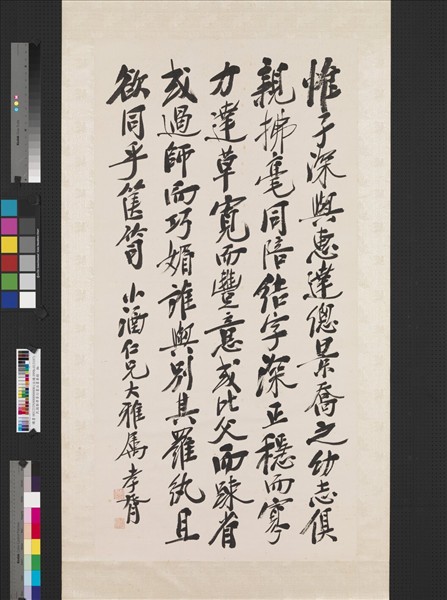 惟子深與惠達總景喬之幼志俱
親拂毫同陪結字深正穩而寡
力達草寬而豐意或比父而踈省
或過師而巧媚誰與別其羅紈且
欲同乎篋笥 小酒仁兄大雅属 孝胥